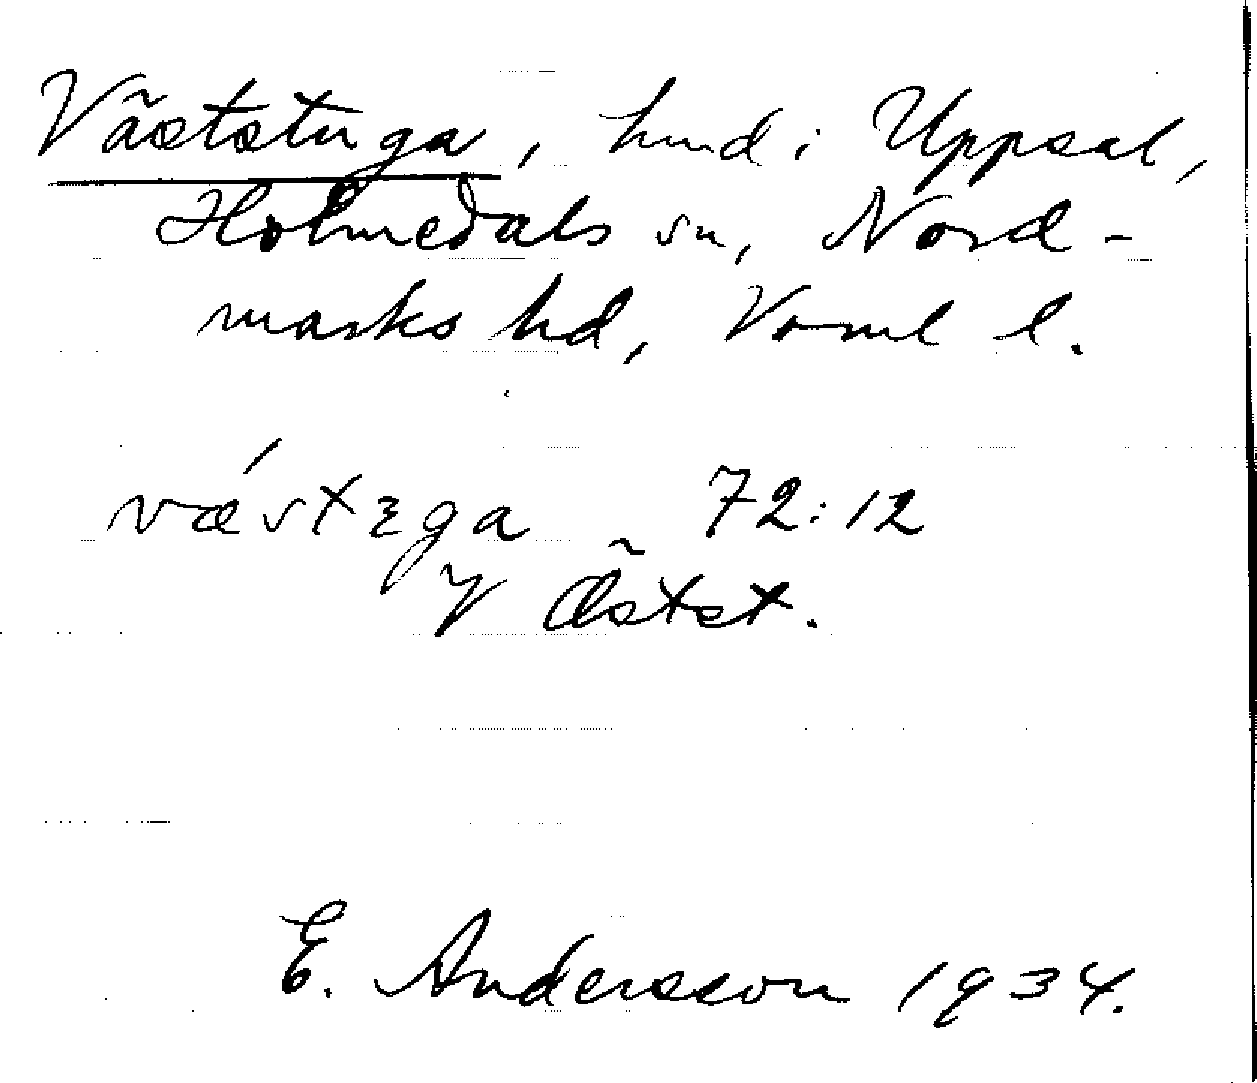 Väststuga, hmd i Uppsal,
Holmedals sn, Nord-
marks hd, Vrml l.
væ´stɜga 72:12
Y Östst.
E. Andersson 1934.